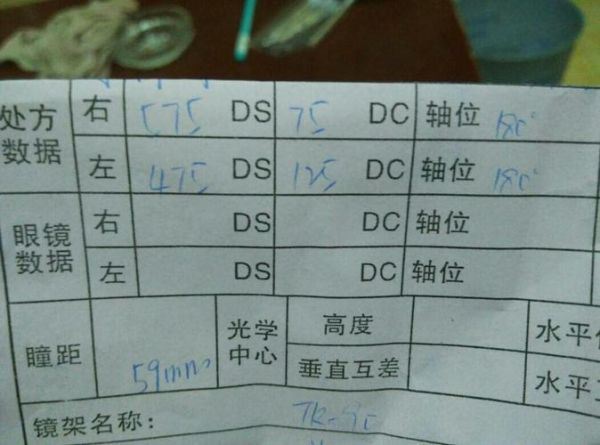 处方数据 右 575 DS 75 DC 轴位 180°
左 475 DS 125 DC 轴位 180°
眼镜数据 右 DS DC 轴位
左 DS DC 轴位
瞳距 59mm 光学中心 高度 水平
垂直互差 水平
镜架名称：